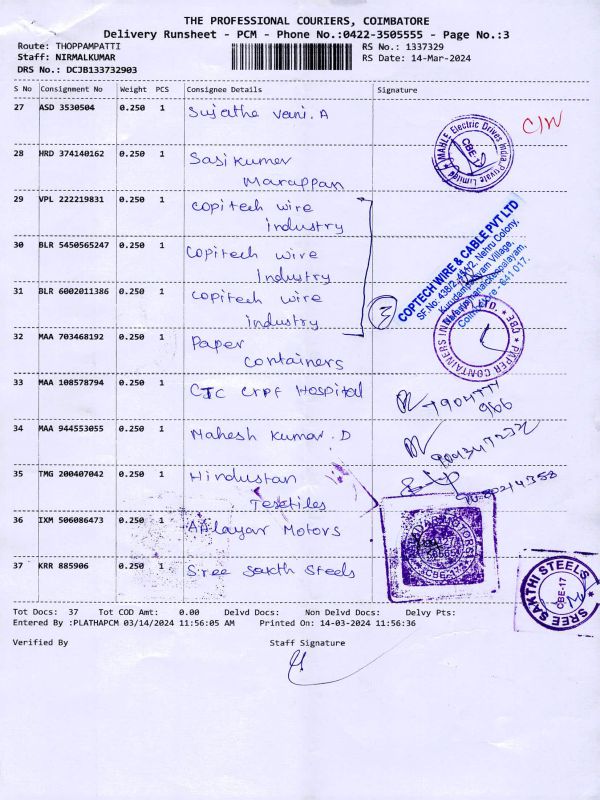 THE PROFESSIONAL COURIERS, COIMBATORE
Delivery Runsheet - PCM - Phone No.:0422-3505555 - Page No.:3
Route: THOPPAMPATTI
RS No.: 1337329
Staff: NIRMALKUMAR
RS Date: 14-Mar-2024
DRS No.: DCJB133732903
S No Consignment No Weight PCS Consignee Details Signature
27 ASD 3530504 0.250 1 Sujatha Vani. A
MAHLE Electric Drives India Private Limited
CBE-17
C/W
28 HRD 374140162 0.250 1 Sasikumar
Marappan
29 VPL 222219831 0.250 1 Copitech wire
industry
30 BLR 5450565247 0.250 1 Copitech wire
Industry
31 BLR 6002011386 0.250 1 Copitech wire
industry
3
COPTECH WIRE & CABLE PVT LTD
SF.No: 438/2, 441/2, Nehru Colony,
Kurudampalayam Village,
32 MAA 703468192 0.250 1 Paper
Containers
PAPER CONTAINERS
CBE
33 MAA 108578794 0.250 1 CTC CRPF Hospital
34 MAA 944553055 0.250 1 Mahesh Kumar. D
35 TMG 200407042 0.250 1 Hindustan
Textiles
36 IXM 506086473 0.250 1 AAlayar Motors
37 KRR 885906 0.250 1 Sree Sakth Steels
SREE SAKTHI STEELS
CBE-17
Tot Docs: 37 Tot COD Amt: 0.00 Delvd Docs: Non Delvd Docs: Delvy Pts:
Entered By :PLATHAPCM 03/14/2024 11:56:05 AM Printed On: 14-03-2024 11:56:36
Verified By Staff Signature